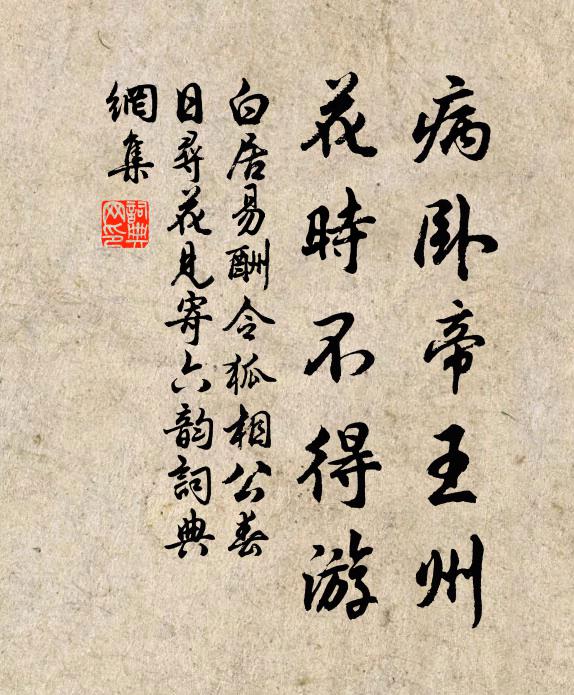 病臥帝王州
花時不得游
白居易酬令狐相公春
日尋花見寄六韵詞典
網集
詞典
网印